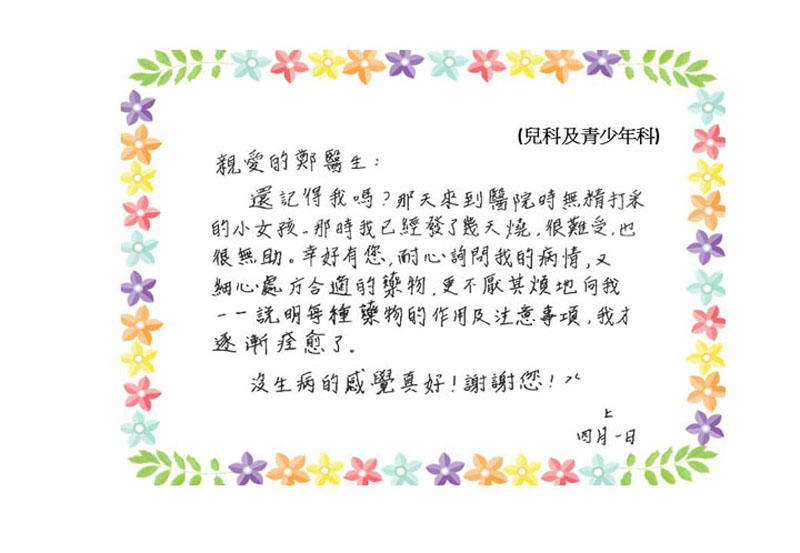 (兒科及青少年科)
親愛的鄭醫生：
還記得我嗎？那天來到醫院時無精打采
的小女孩。那時我已經發了幾天燒，很難受，也
很無助。幸好有您，耐心詢問我的病情，又
細心處方合適的藥物，更不厭其煩地向我
一一說明每種藥物的作用及注意事項，我才
逐漸痊愈了。
沒生病的感覺真好！謝謝您！
上
四月一日